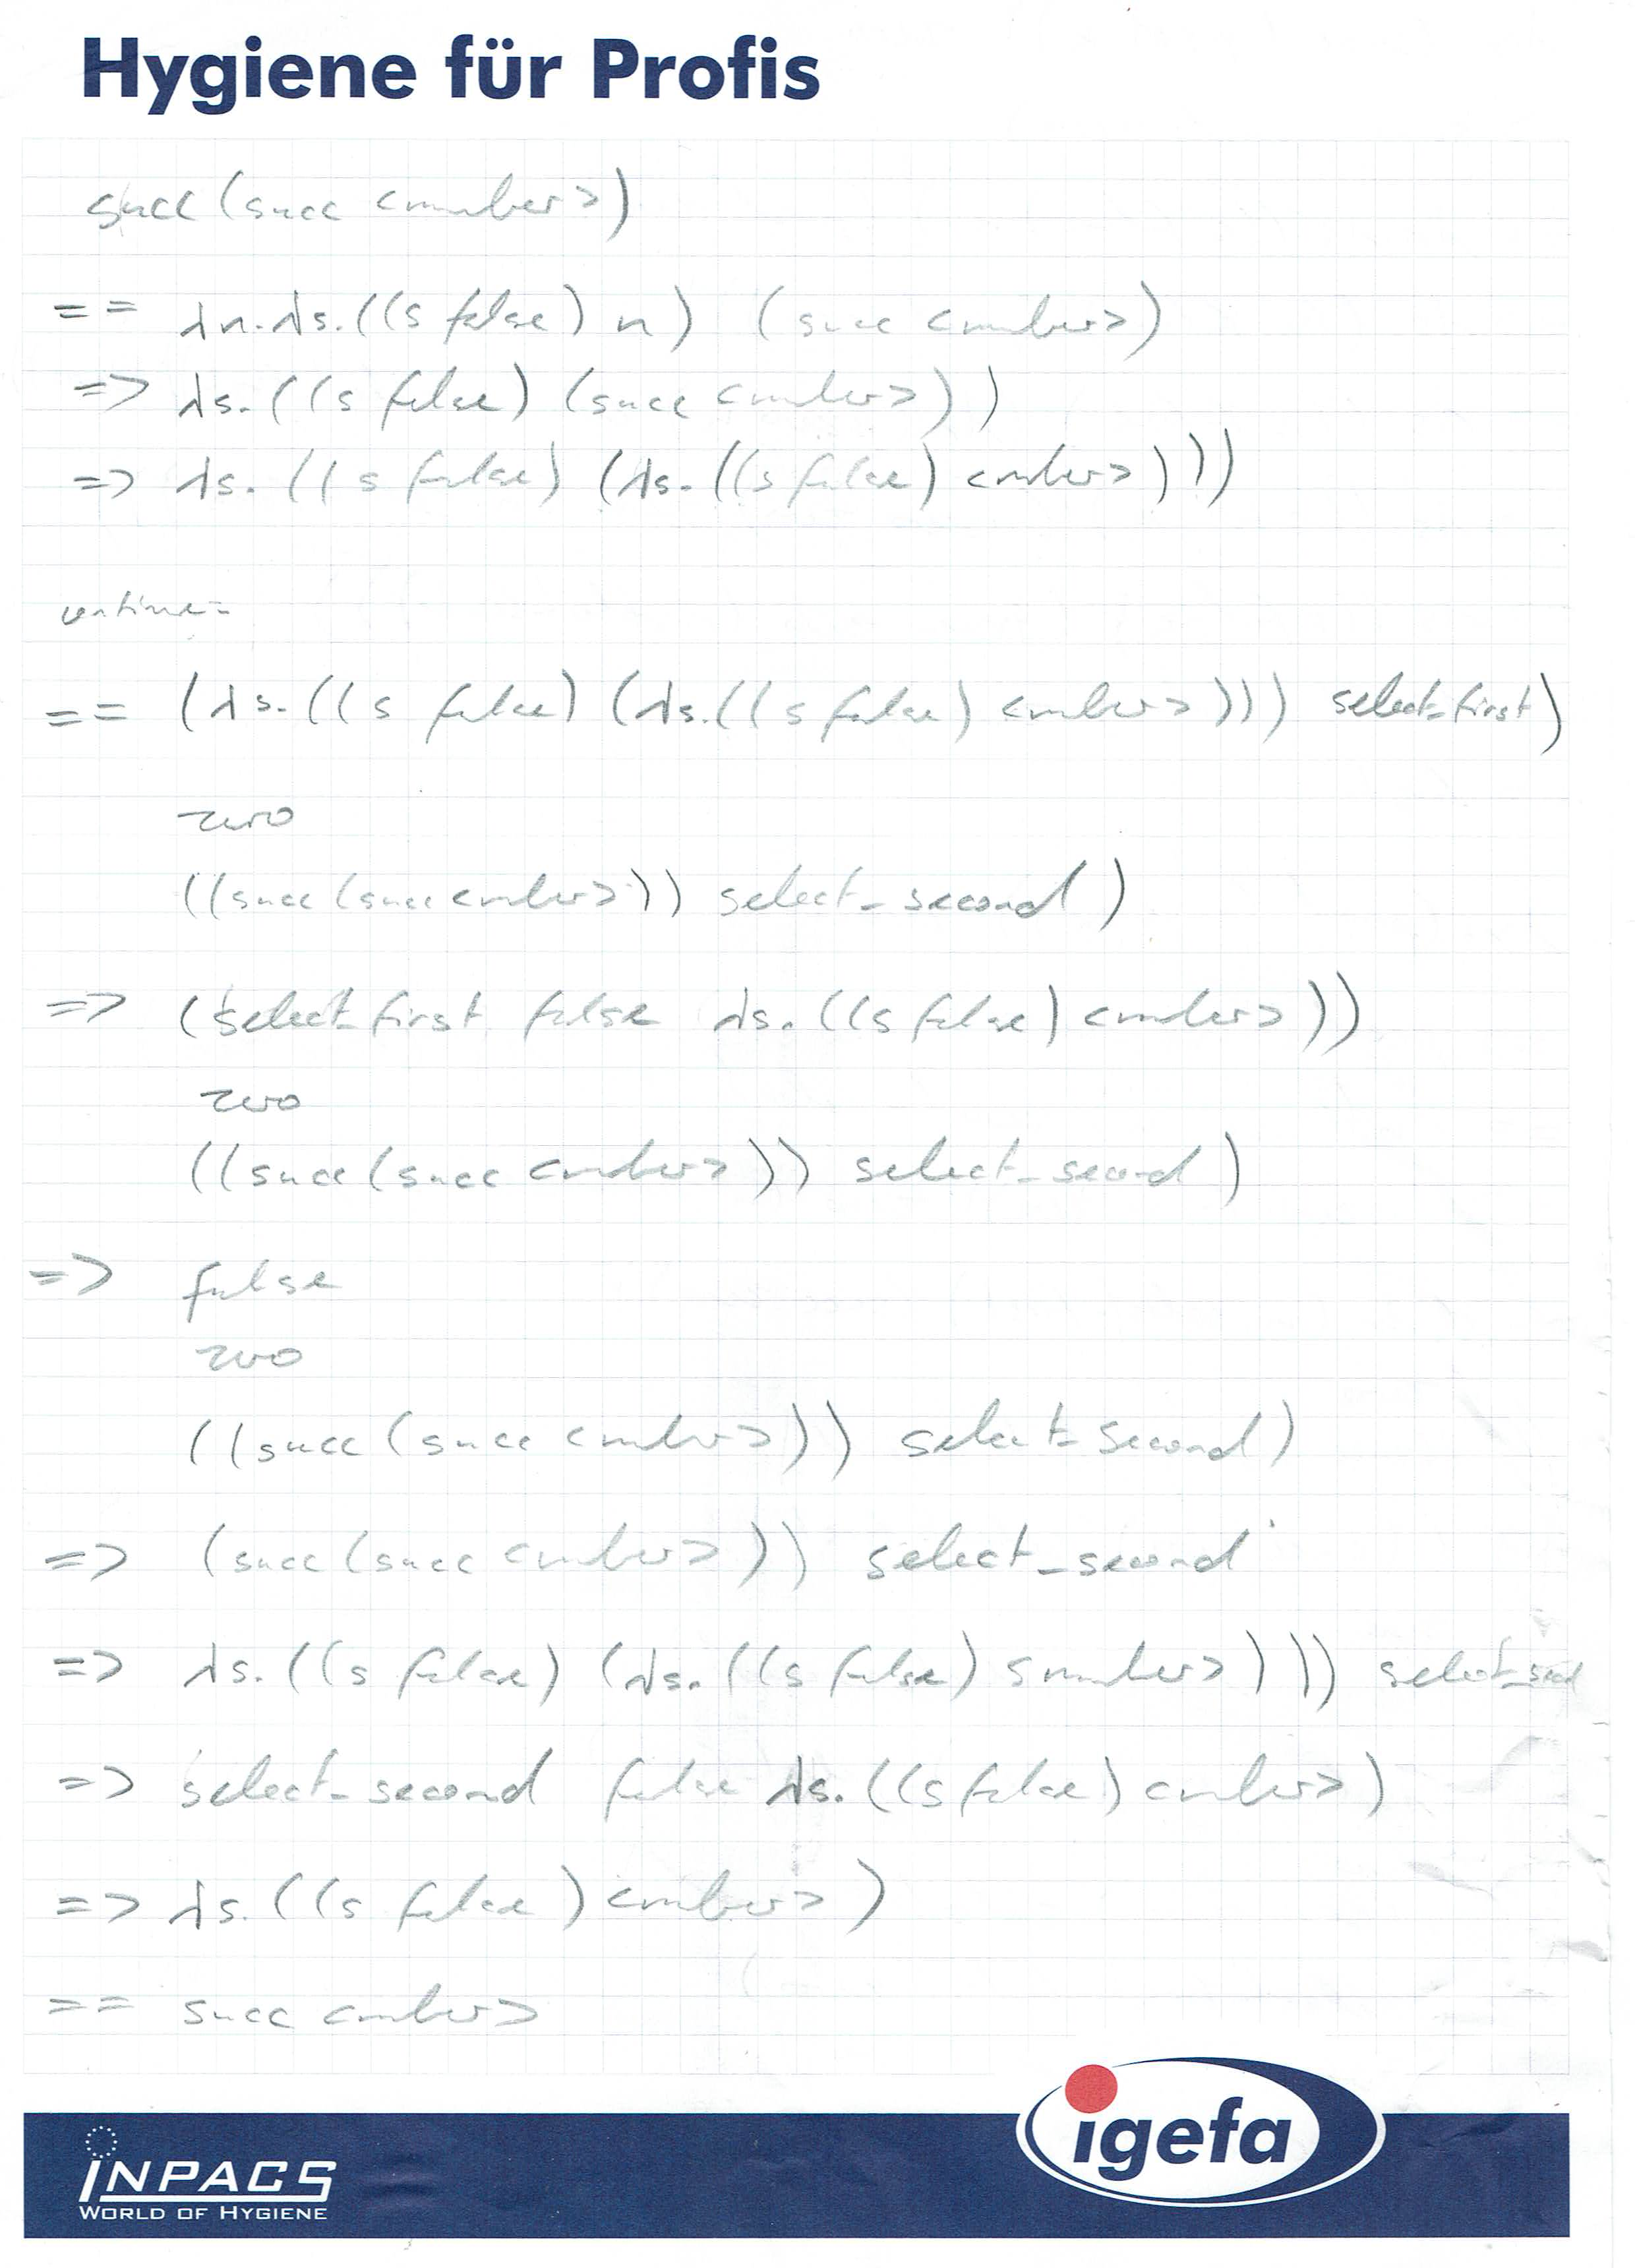 Hygiene für Profis
succ (succ <number>)
== λn.λs.((s false) n) (succ <number>)
=> λs.((s false) (succ <number>))
=> λs.((s false) (λs.((s false) <number>)))
continue:
== (λs.((s false) (λs.((s false) <number>))) select_first)
zero
((succ (succ <number>)) select_second)
=> (select_first false λs.((s false) <number>))
zero
((succ (succ <number>)) select_second)
=> false
zero
((succ (succ <number>)) select_second)
=> (succ (succ <number>)) select_second
=> λs.((s false) (λs.((s false) <number>))) select_second
=> select_second false λs.((s false) <number>)
=> λs.((s false) <number>)
== succ <number>
igefa
INPACS
WORLD OF HYGIENE